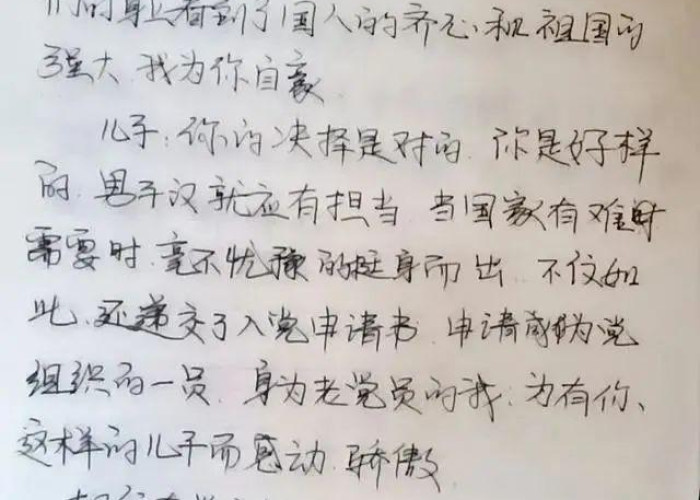 们的身上看到了国人的齐心和祖国的
强大.我为你自豪
儿子:你的决择是对的.你是好样
的.男子汉就应有担当.当国家有难时
需要时.毫不忧豫的挺身而出.不仅如
此.还递交了入党申请书.申请成为党
组织的一员.身为老党员的我.为有你、
这样的儿子而感动.骄傲